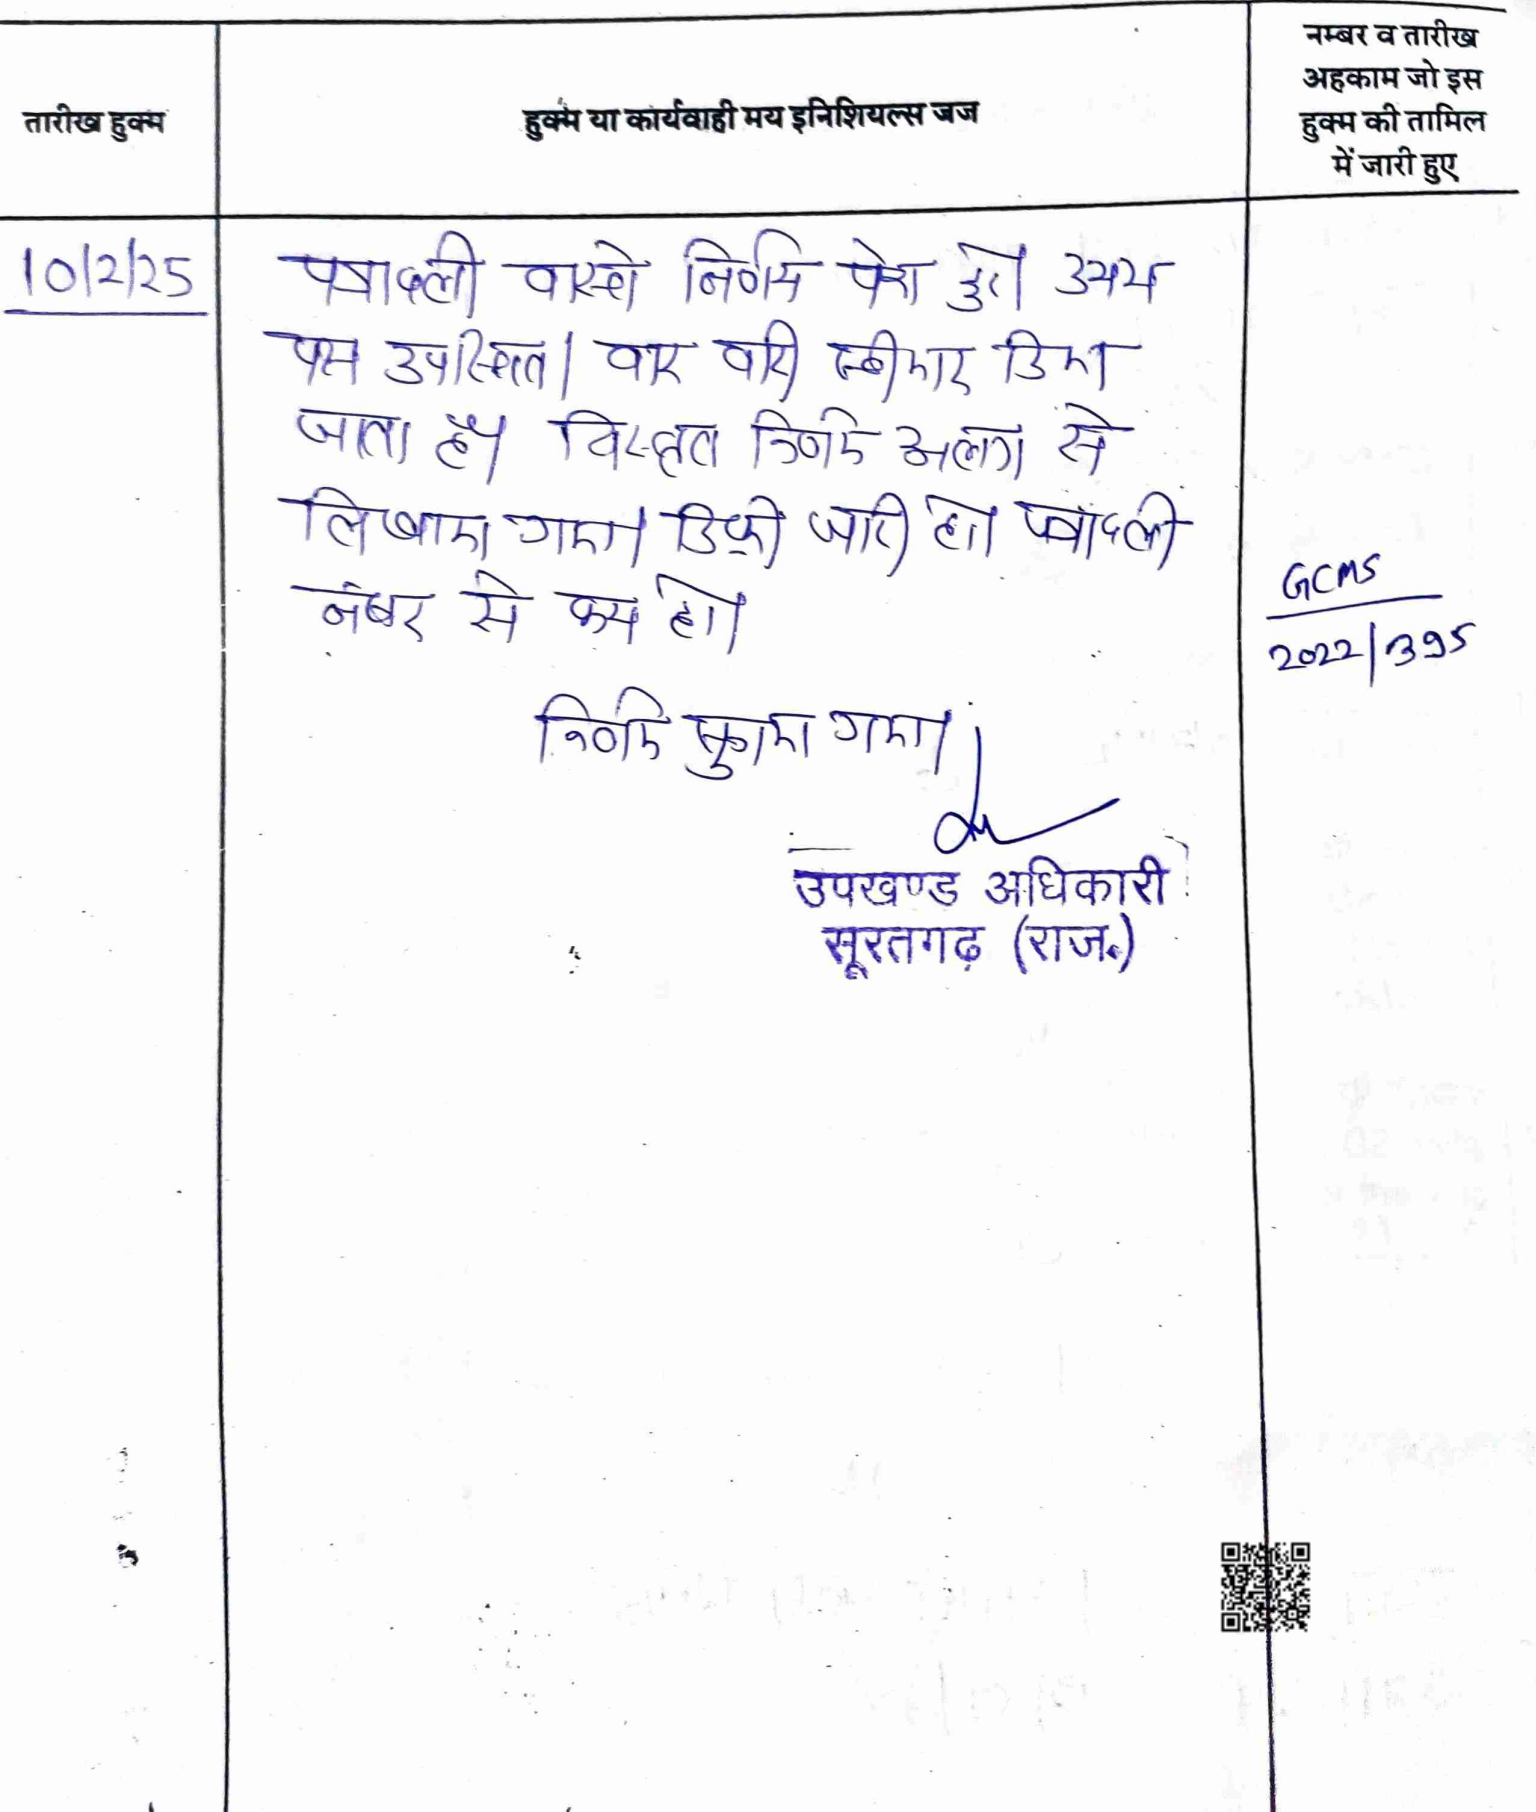 तारीख हुक्म
हुक्म या कार्यवाही मय इनिशियल्स जज
नम्बर व तारीख
अहकाम जो इस
हुक्म की तामिल
में जारी हुए
10/2/25
पत्रावली वास्ते निर्णय पेश हुई। उभय
पक्ष उपस्थित। वाद वादी स्वीकार किया
जाता है। विस्तृत निर्णय अलग से
लिखाया गया। डिक्री जारी हो। पत्रावली
नंबर से कम हो।
GCMS
2022/395
निर्णय सुनाया गया।
उपखण्ड अधिकारी
सूरतगढ़ (राज.)